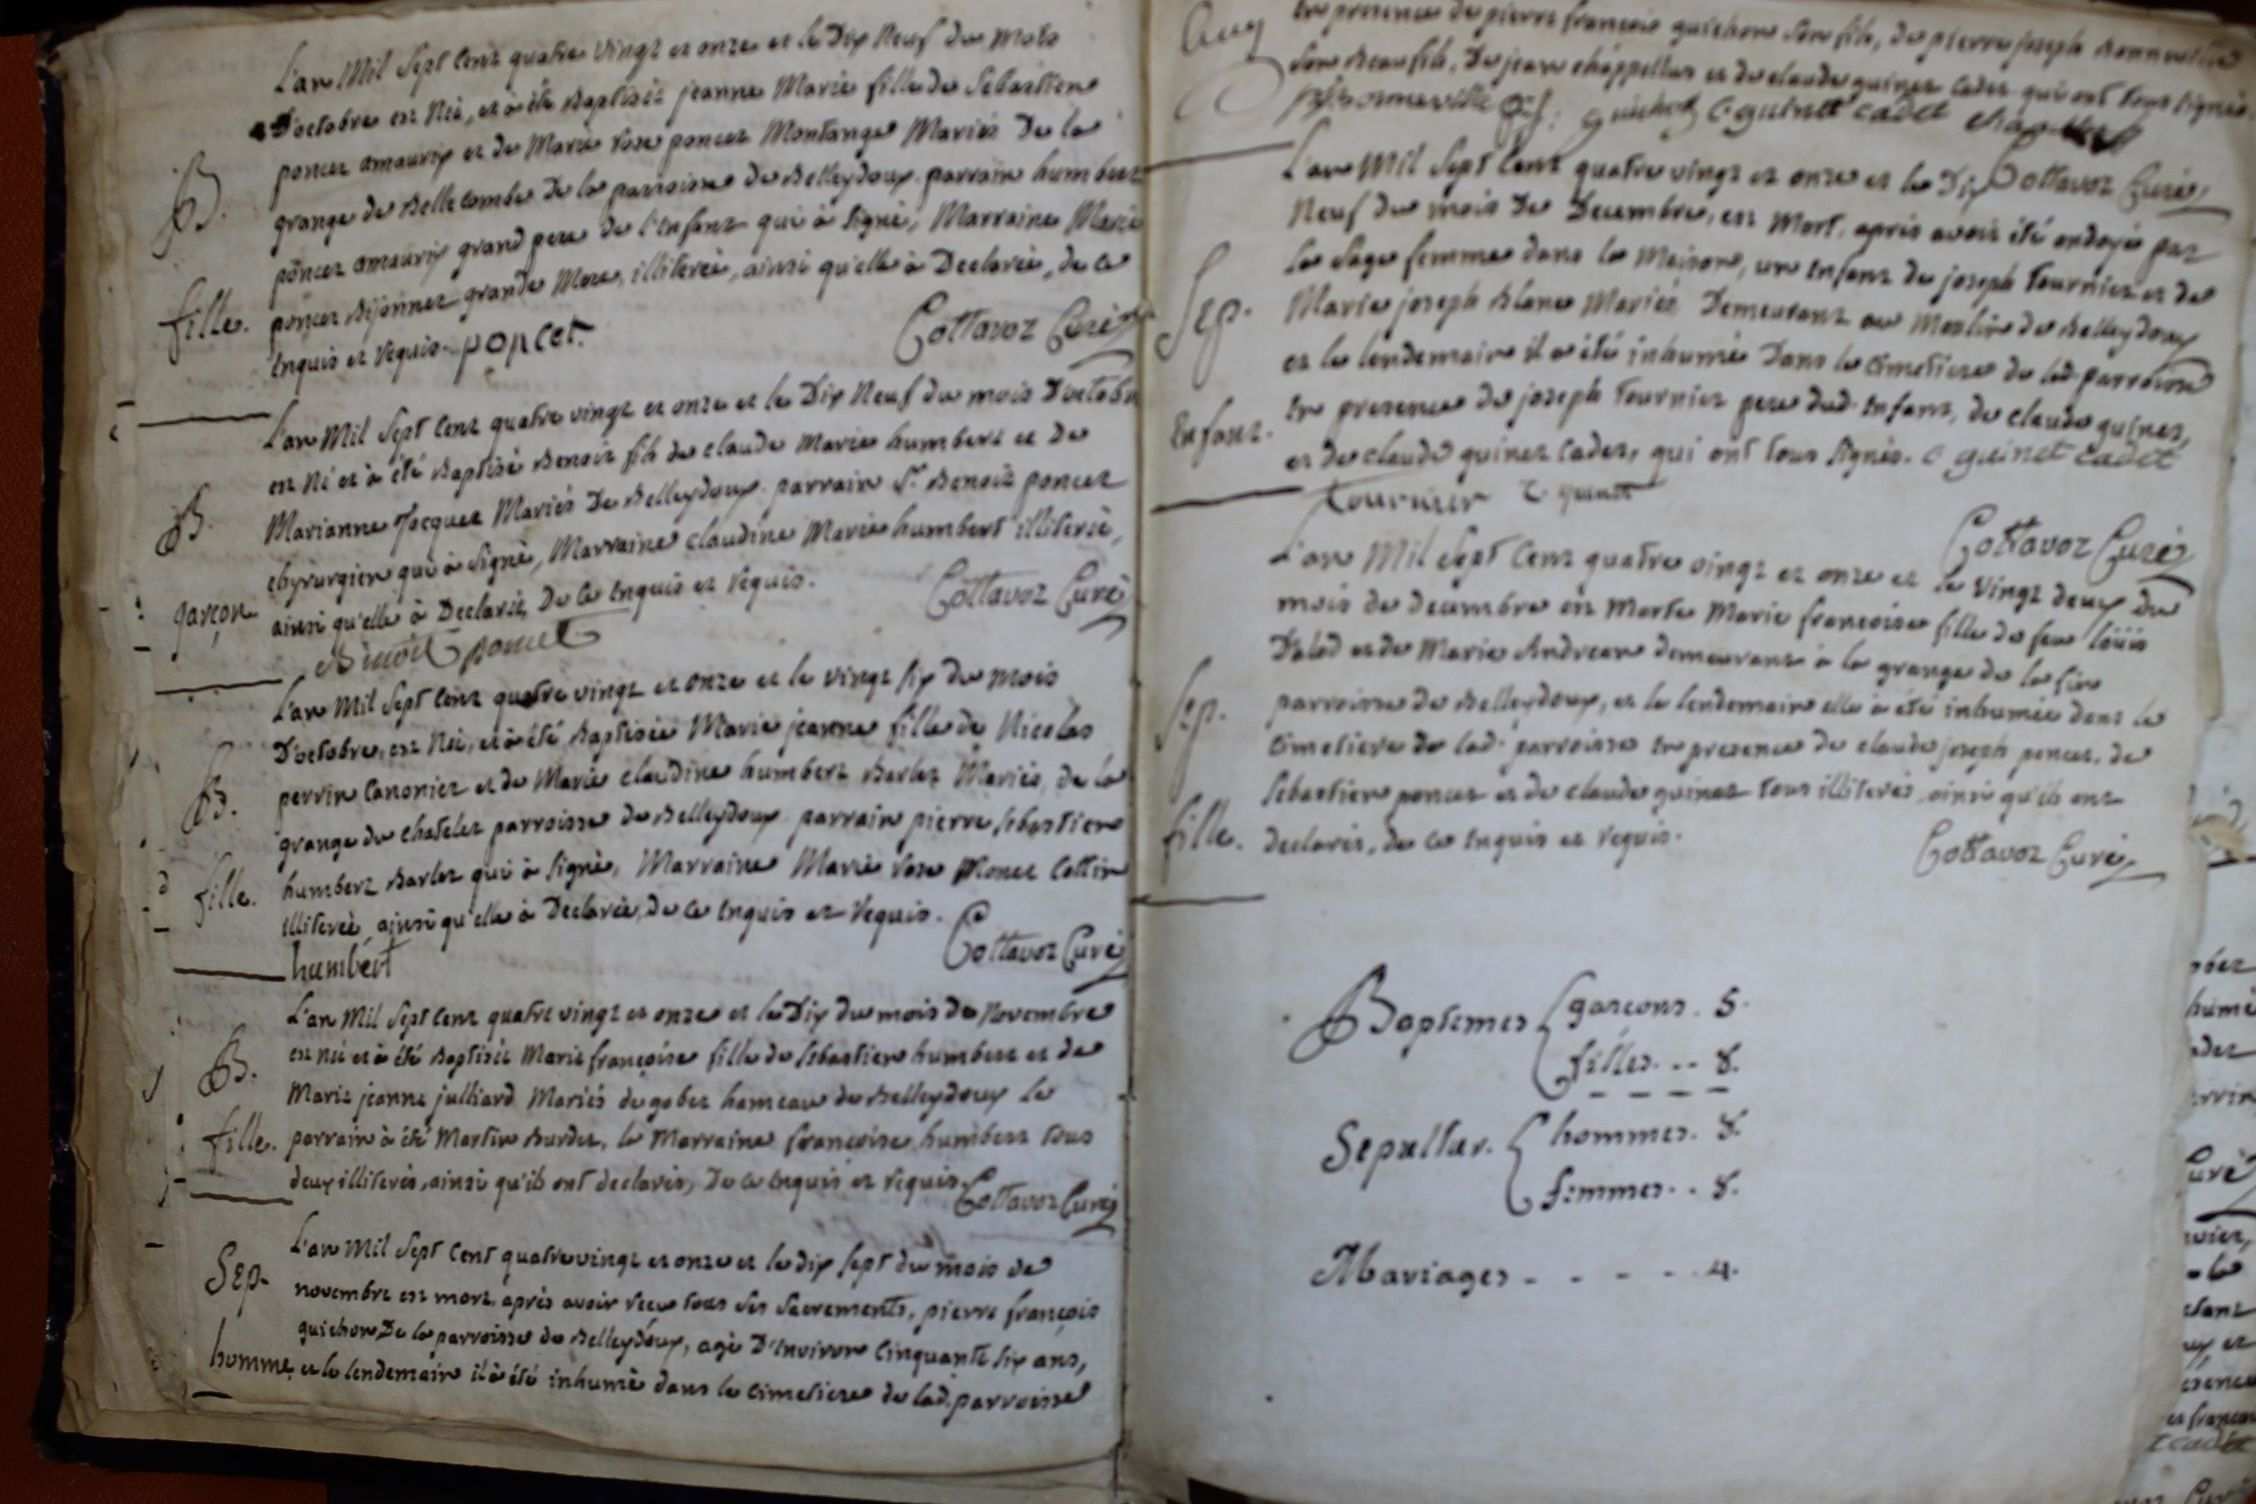 L'an Mil Sept Cent quatre vingt et onze et le Dix Neuf du Mois
D'octobre est Née, et à été Baptisée jeanne Marie fille de Sebastien
poncet amauris et de Marie rose poncet Montange Mariés De la
grange de Bellecombe De la parroisse de Belleydoux. parrain humbert
poncet amauris grand pere de l'enfant qui à signé, Marraine Marie
poncet Bijonnet grande Mere, illiterée, ainsi qu'elle à Declarée, de ce
Enquis et requis. poncet.
Cottavoz Curé
B.
fille.
L'an Mil Sept Cent quatre vingt et onze et le Dix Neuf du mois D'octobre
est Né et à été Baptisé Benoit fils de claude Marie humbert et de
Marianne Jacquet Mariés De Belleydoux. parrain Sr. Benoit poncet
chyrurgien qui à signé, Marraine claudine Marie humbert illiterée,
ainsi qu'elle à Declarée, De ce Enquis et requis.
Cottavoz Curé
Benoit poncet
B.
garçon
L'an Mil Sept Cent quatre vingt et onze et le vingt six du mois
D'octobre, est Née, et à été Baptisée Marie jeanne fille de Nicolas
perrin Canonier et de Marie claudine humbert Barlet Mariés, de la
grange du chatelet parroisse de Belleydoux. parrain pierre sebastien
humbert Barlet qui à signé, Marraine Marie rose Monet Cottin
illiterée, ainsi qu'elle à Declarée, de ce Enquis et requis.
Cottavoz Curé
humbert
B.
fille.
L'an Mil Sept Cent quatre vingt et onze et le Dix du mois de Novembre
est née et à été Baptisée Marie françoise fille de sebastien humbert et de
Marie jeanne julliard Mariés du gobet hameau de Belleydoux le
parrain à été Martin Burdet, la Marraine françoise humbert tous
deux illiterés, ainsi qu'ils ont declarés, De ce Enquis et requis.
Cottavoz Curé
B.
fille.
L'an Mil Sept Cent quatre vingt et onze et le dix sept du mois de
novembre est mort, après avoir reçu tous ses Sacrements, pierre françois
guichon De la parroisse de Belleydoux, agé D'environ Cinquante six ans,
et le lendemain il à été inhumé dans le Cimetiere de lad. parroisse
Sep.
homme
en presence de pierre françois guichon son fils, de pierre joseph Bonneville
son Beau fils, De jean chappellus et de claude guinet cadet qui ont tous signés.
Bonneville guichon C guinet cadet
Cottavoz Curé
L'an Mil Sept Cent quatre vingt et onze et le Dix
Neuf du mois De Decembre, est Mort, après avoir été ondoyé par
la Sage femme dans la Maison, un Enfant de joseph Tournier et de
Marie joseph Blanc Mariés Demeurant au Moulin de Belleydoux
et le lendemain il a été inhumé Dans le Cimetiere de lad. parroisse
en presence de joseph Tournier pere dud. Enfant, de claude guinet,
et de claude guinet Cadet, qui ont tous signés. C guinet cadet
Tournier C guinet
Cottavoz Curé
Sep.
Enfant.
L'an Mil Sept Cent quatre vingt et onze et le vingt deux du
mois de decembre est Morte Marie françoise fille de feu loüis
et de Marie Andrean demeurant à la grange de la sire
parroisse de Belleydoux, et le lendemain elle à été inhumée dans le
Cimetiere de lad. parroisse en presence de claude joseph poncet, de
Sebastien poncet et de claude guinet tous illiterés, ainsi qu'ils ont
declarés, de ce Enquis et requis.
Cottavoz Curé
Sep.
fille.
Baptemes garcons. 5.
filles. .. 8.
Sepultur. hommes. 8.
femmes. . 8.
Mariages - - - - - 4.